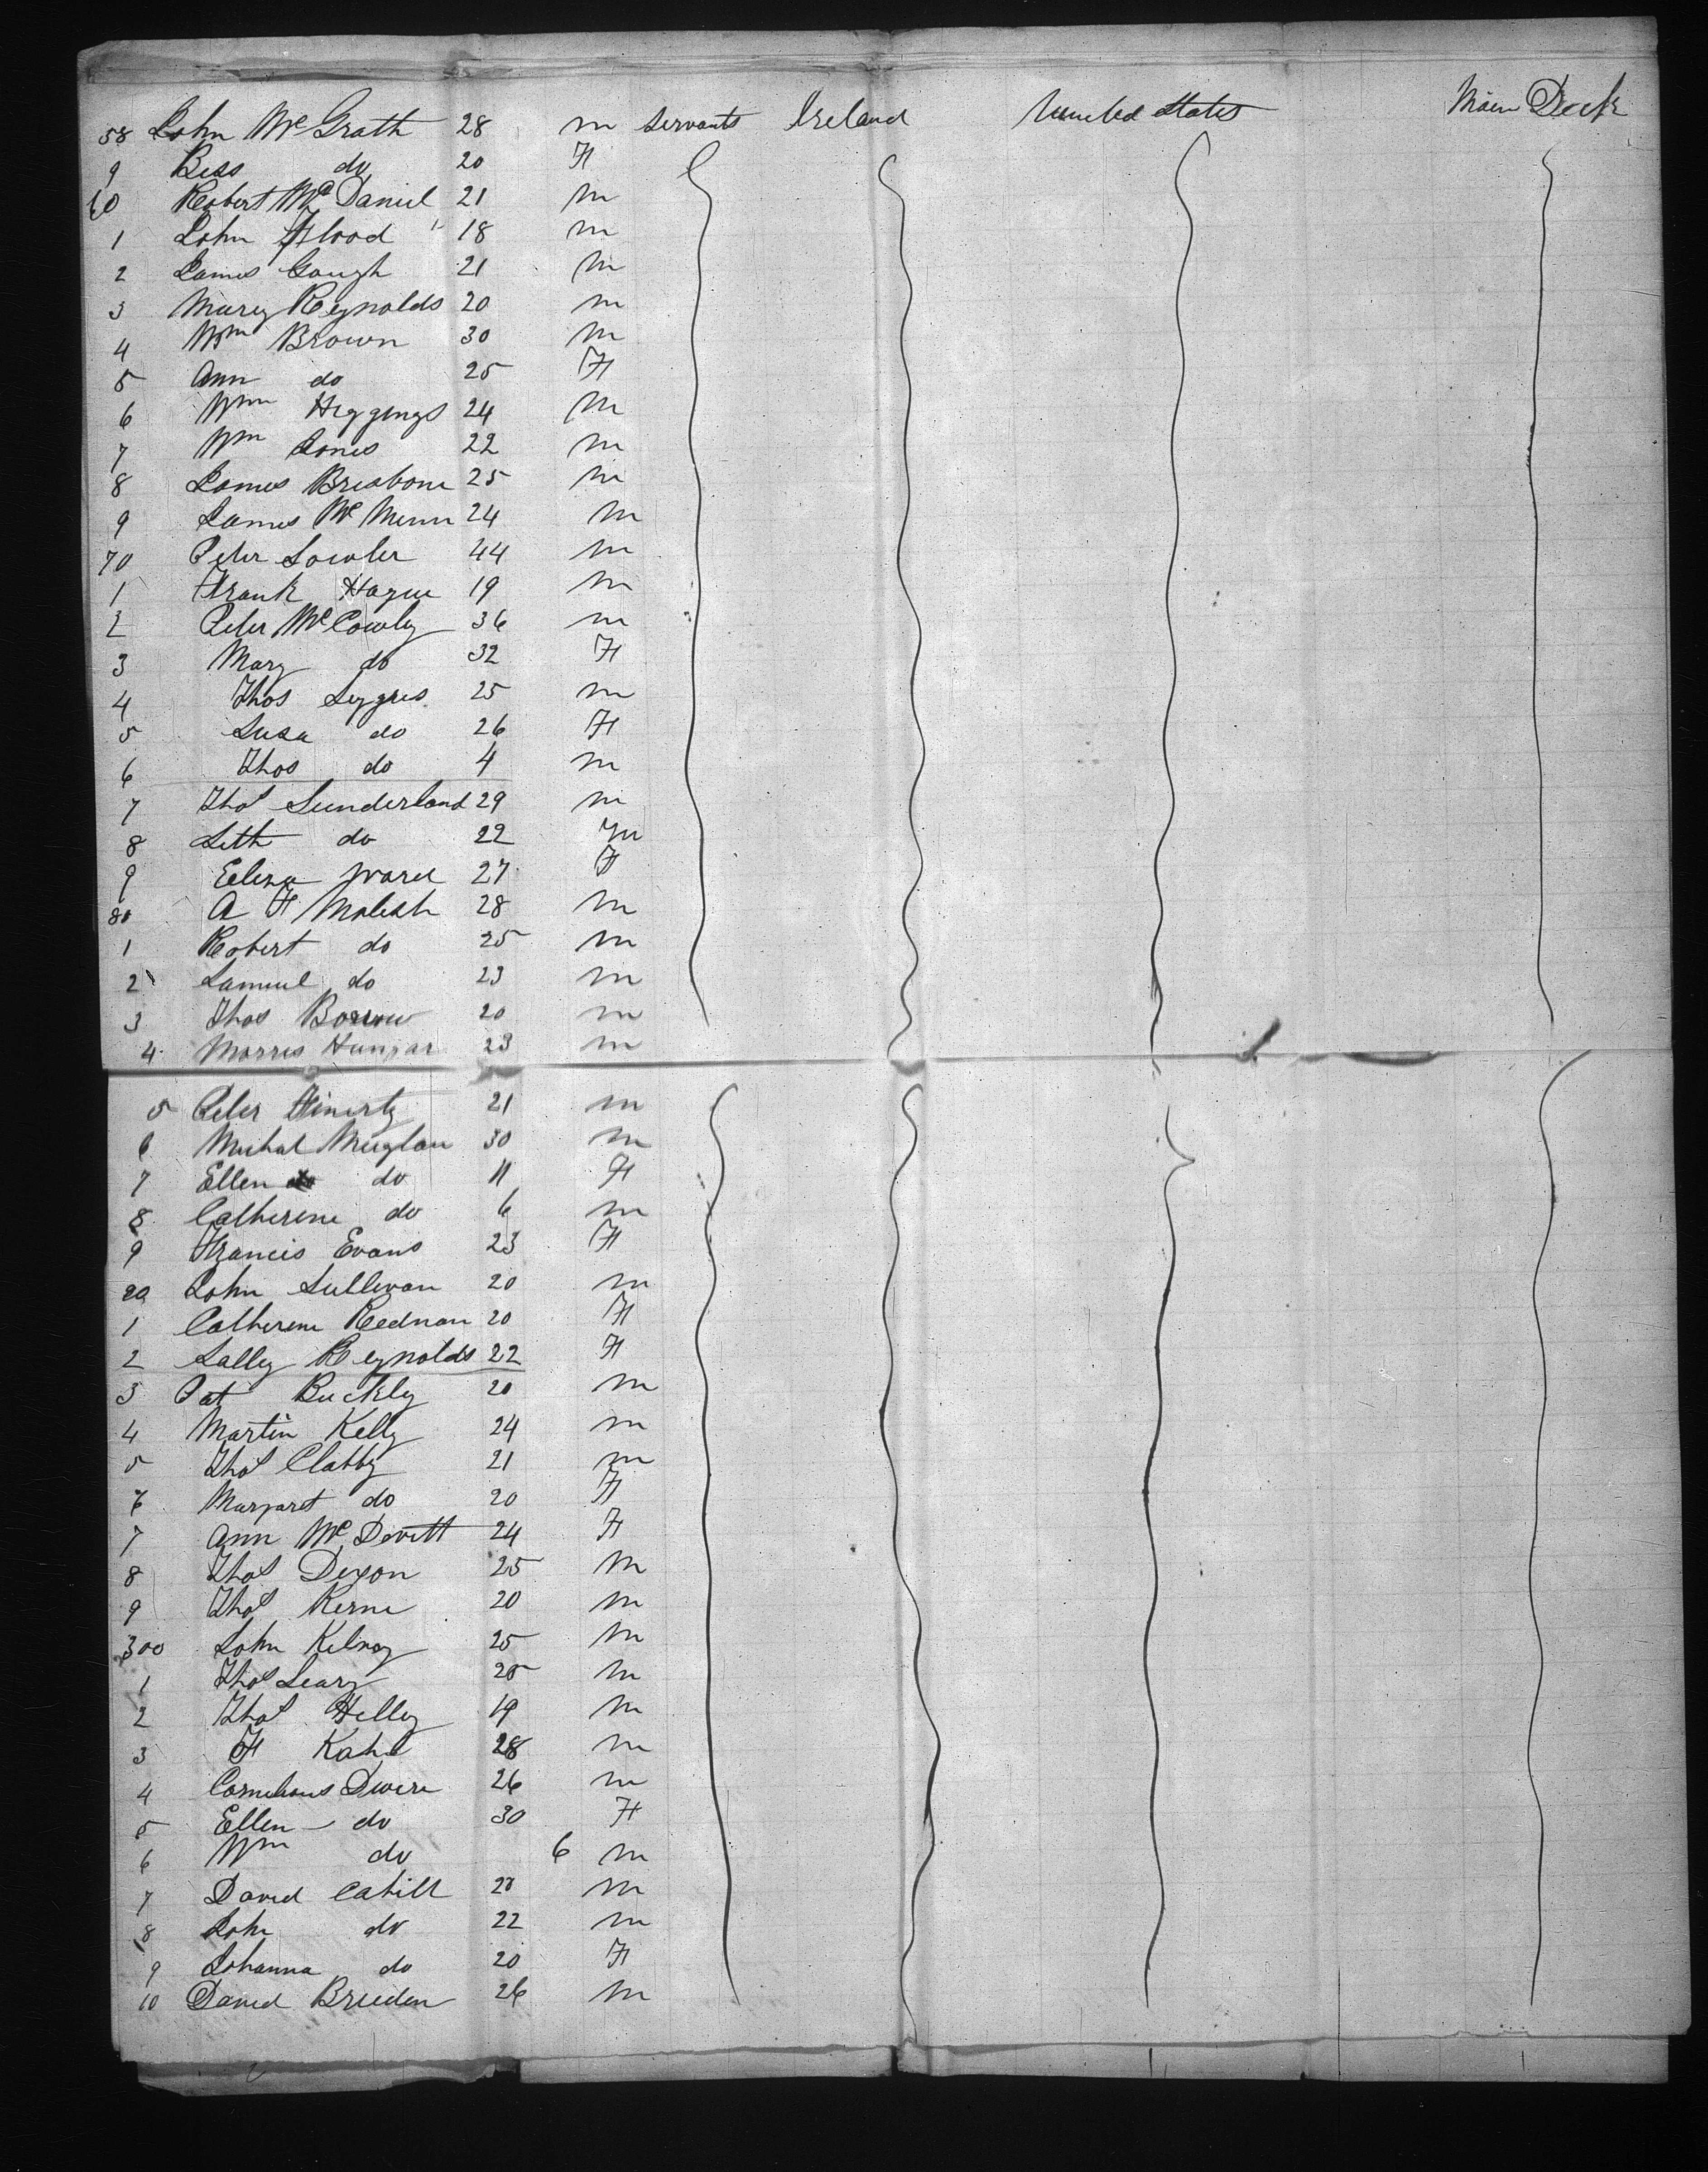 58 John McGrath 28 m servants Ireland United States Main Deck
9 Bess do 20 F
60 Robert McDaniel 21 m
1 John Flood 18 m
2 James Gough 21 m
3 Mary Reynolds 20 m
4 Wm Brown 30 m
5 Ann do 25 F
6 Wm Higgings 24 m
7 Wm Jones 22 m
8 James Brisbone 25 m
9 James Mc 24 m
70 Peter Lowler 44 m
1 Frank Hague 19 m
2 Peter McCowly 36 m
3 Mary do 32 F
4 Thos 25 m
5 Susa do 26 F
6 Thos do 4 m
7 Thos Sunderland 29 m
8 Seth do 22 m
9 Eliza Ward 27 F
80 A F 28 m
1 Robert do 25 m
2 Samuel do 23 m
3 Thos 20 m
4 Morris 23 m
5 Peter Finerty 21 m
6 Michal 30 m
7 Ellen do 11 F
8 Catherine do 6 m
9 Francis Evans 23 F
90 John Sullivan 20 m
1 Catherine Rednan 20 F
2 Sally Reynolds 22 F
3 Pat Buckly 20 m
4 Martin Kelly 24 m
5 Thos Clabby 21 m
6 Margaret do 20 F
7 Ann McDevitt 24 F
8 Thos Dixon 25 m
9 Thos Kerne 20 m
300 John Kilroy 25 m
1 Thos Leary 25 m
2 Thos Helley 19 m
3 F 28 m
4 Cornelious Dwire 26 m
5 Ellen do 30 F
6 Wm do 6 m
7 David Cahill m
8 John do 22 m
9 Johanna do 20 F
10 David Breeden 26 m